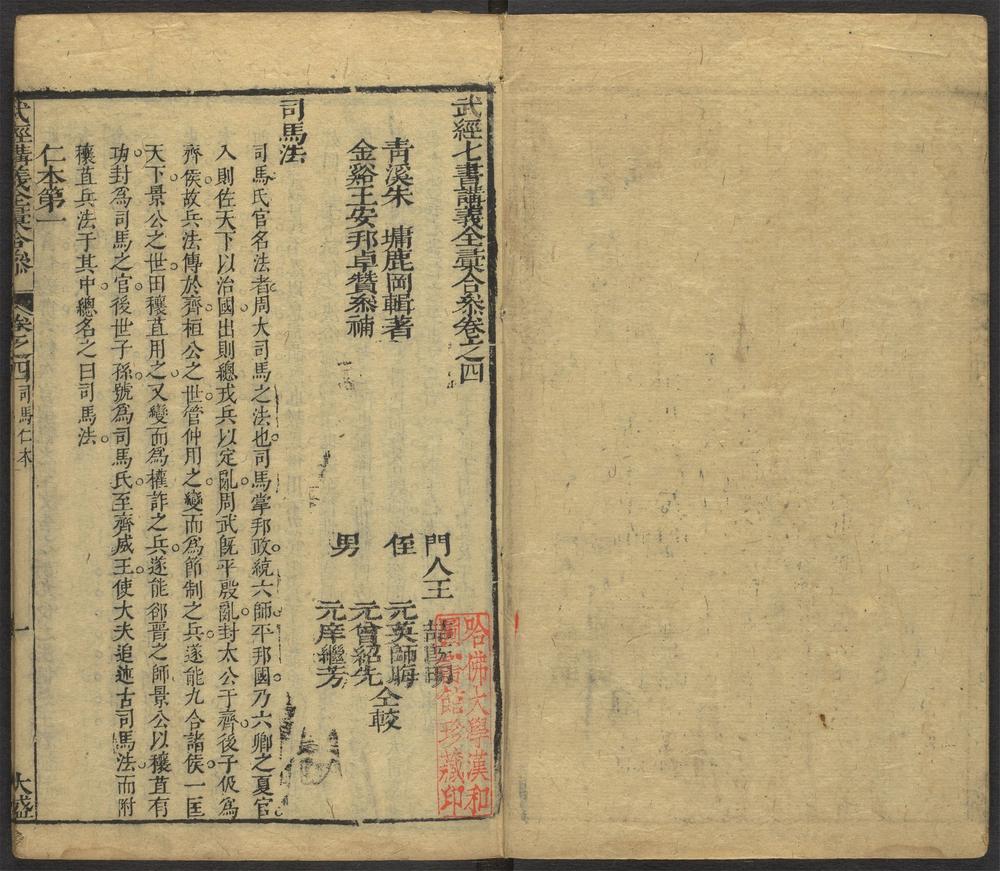 武經七書講義全彙合叅卷之四
青溪朱墉鹿岡輯著
金谿王安邦卓贊叅補
門人王
侄元英師晦
元曾紹先
男元庠繼芳
仝較
司馬法
司馬氏官名法者周大司馬之法也司馬掌邦政統六師平邦國乃六卿之夏官
入則佐天下以治國出則總戎兵以定亂周武旣平殷亂封太公于齊後子伋爲
齊侯故兵法傳於齊桓公之世管仲用之變而爲節制之兵遂能九合諸侯一匡
天下景公之世田穰苴用之又變而爲權詐之兵遂能郤晋之師景公以穰苴有
功封爲司馬之官後世子孫號爲司馬氏至齊威王使大夫追述古司馬法而附
穰苴兵法于其中總名之曰司馬法
仁本第一
武經講義全彙合叅
卷之四
司馬仁本
一
大盛
哈佛大學漢和
圖書館珍藏印